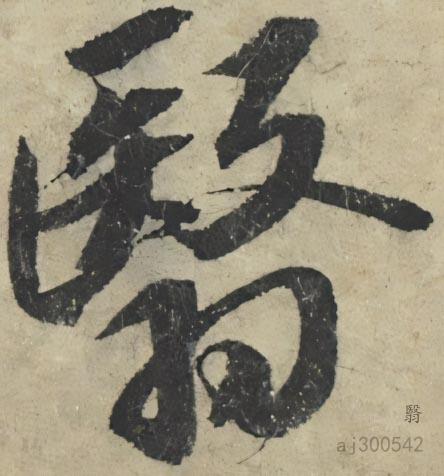 翳
翳
aj300542